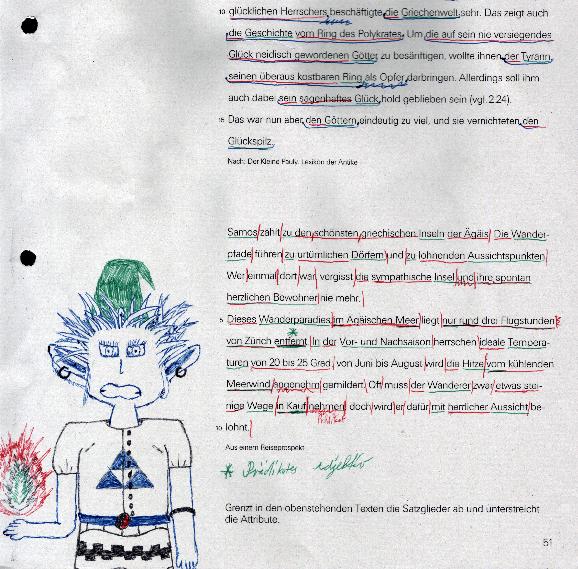 10 glücklichen Herrschers beschäftigte die Griechenwelt sehr. Das zeigt auch
die Geschichte vom Ring des Polykrates. Um die auf sein nie versiegendes
Glück neidisch gewordenen Götter zu besänftigen, wollte ihnen der Tyrann
seinen überaus kostbaren Ring als Opfer darbringen. Allerdings soll ihm
auch dabei sein sagenhaftes Glück hold geblieben sein (vgl. 2.24).
15 Das war nun aber den Göttern eindeutig zu viel, und sie vernichteten den
Glückspilz.
Nach: Der Kleine Pauly. Lexikon der Antike
Samos zählt zu den schönsten griechischen Inseln der Ägäis. Die Wander-
pfade führen zu urtümlichen Dörfern und zu lohnenden Aussichtspunkten.
Wer einmal dort war, vergisst die sympathische Insel und ihre spontan
herzlichen Bewohner nie mehr.
5 Dieses Wanderparadies im Ägäischen Meer liegt nur rund drei Flugstunden
von Zürich entfernt. In der Vor- und Nachsaison herrschen ideale Tempera-
turen von 20 bis 25 Grad, von Juni bis August wird die Hitze vom kühlenden
Meerwind angenehm gemildert. Oft muss der Wanderer zwar etwas stei-
nige Wege in Kauf nehmen, doch wird er dafür mit herrlicher Aussicht be-
Prädikat
10 lohnt.
Aus einem Reiseprospekt
* Prädikates adjektiv
Grenzt in den obenstehenden Texten die Satzglieder ab und unterstreicht
die Attribute.
51